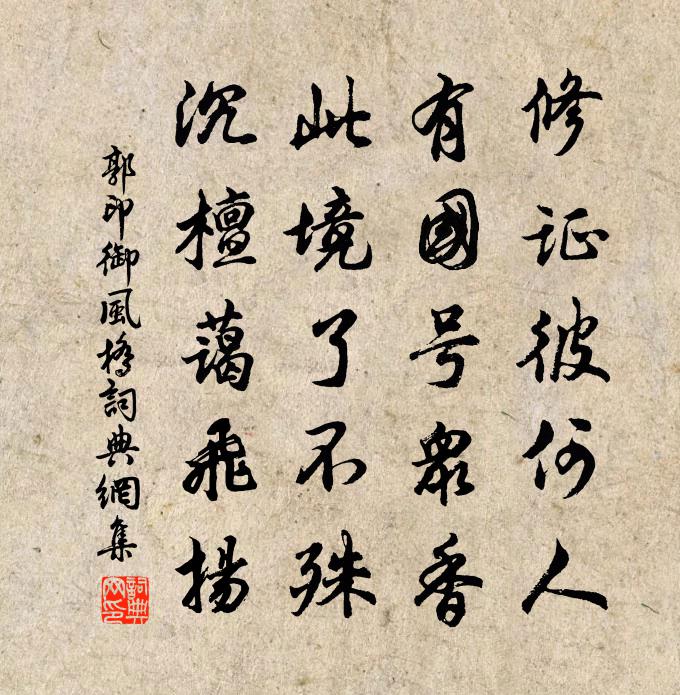 修证彼何人
有國号衆香
此境了不殊
沉檀藹飛揚
郭印御風橋詞典網集
詞典网印